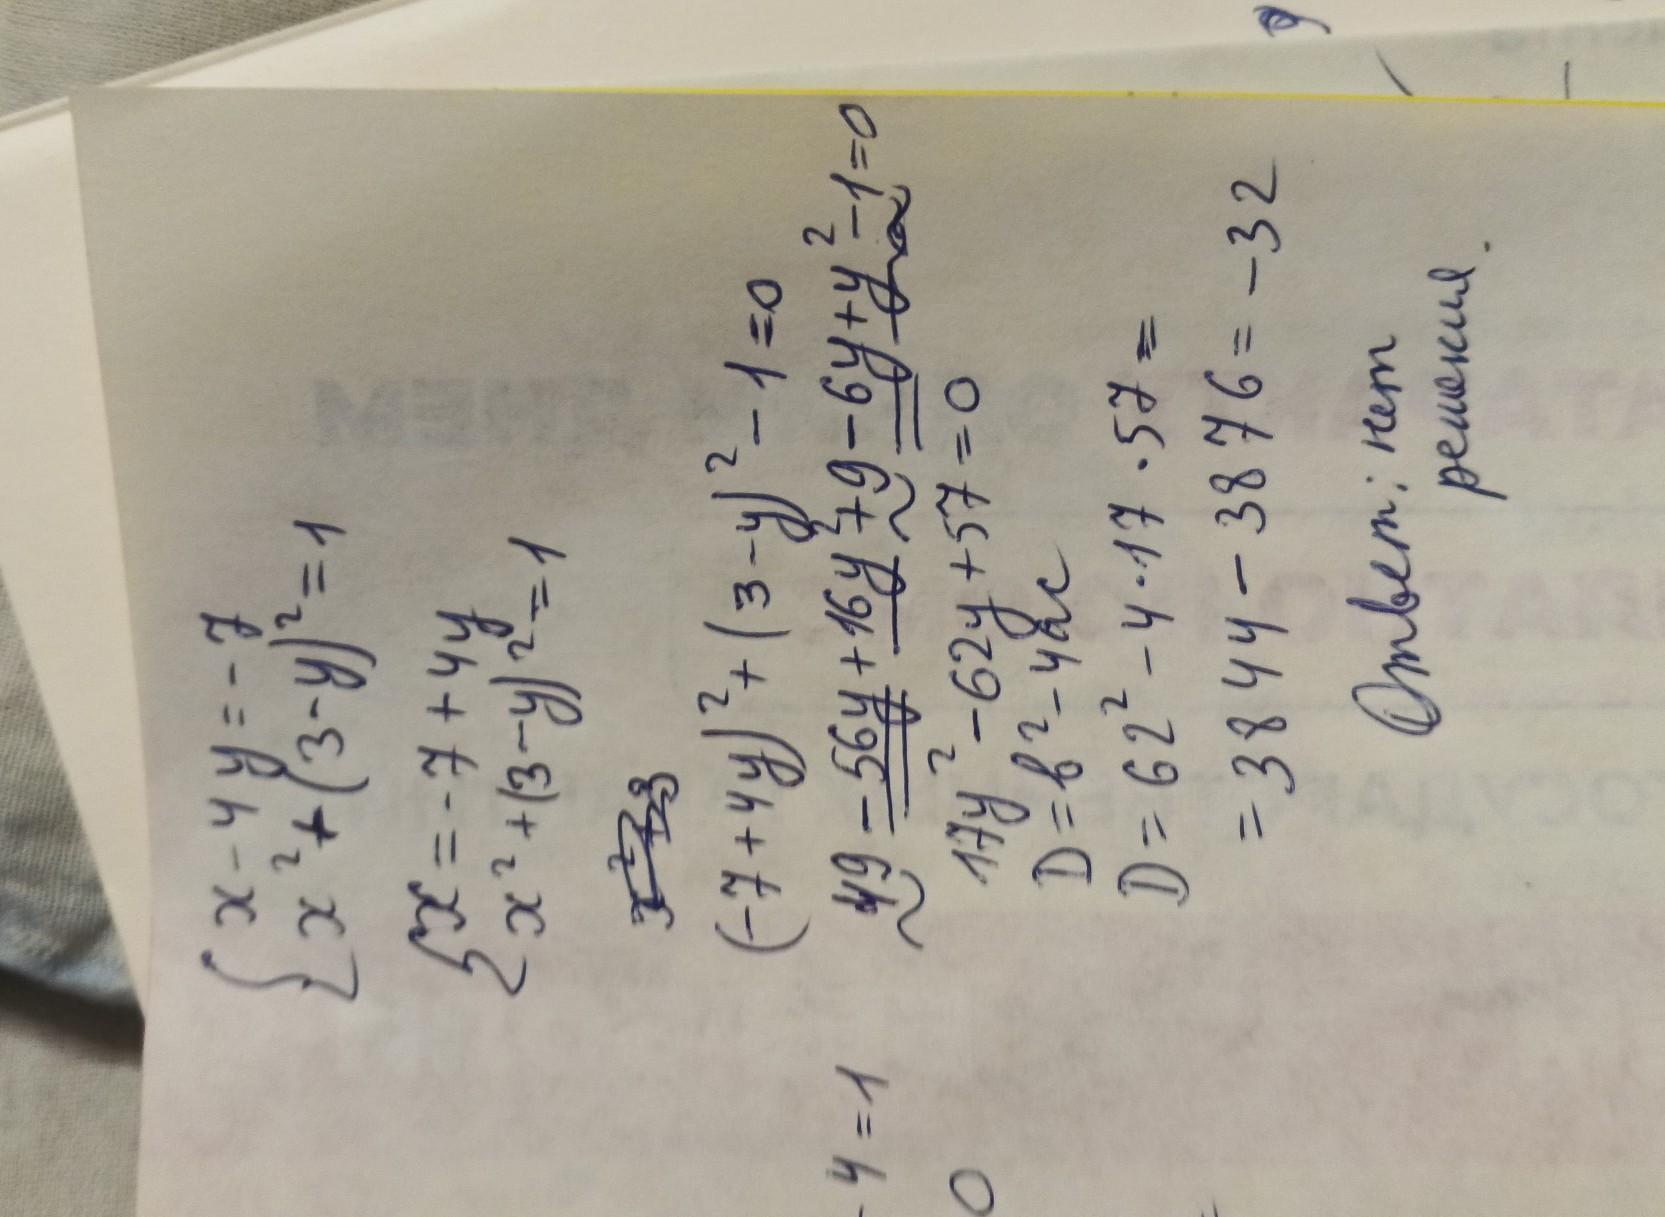 { x - 4y = -7
x² + (3-y)² = 1
{ x = -7 + 4y
x² + (3-y)² = 1
(-7+4y)² + (3-y)² - 1 = 0
49 - 56y + 16y² + 9 - 6y + y² - 1 = 0
17y² - 62y + 57 = 0
D = b² - 4ac
D = 62² - 4·17·57 =
= 3844 - 3876 = -32
Ответ: нет
решения.
- 4 = 1
0